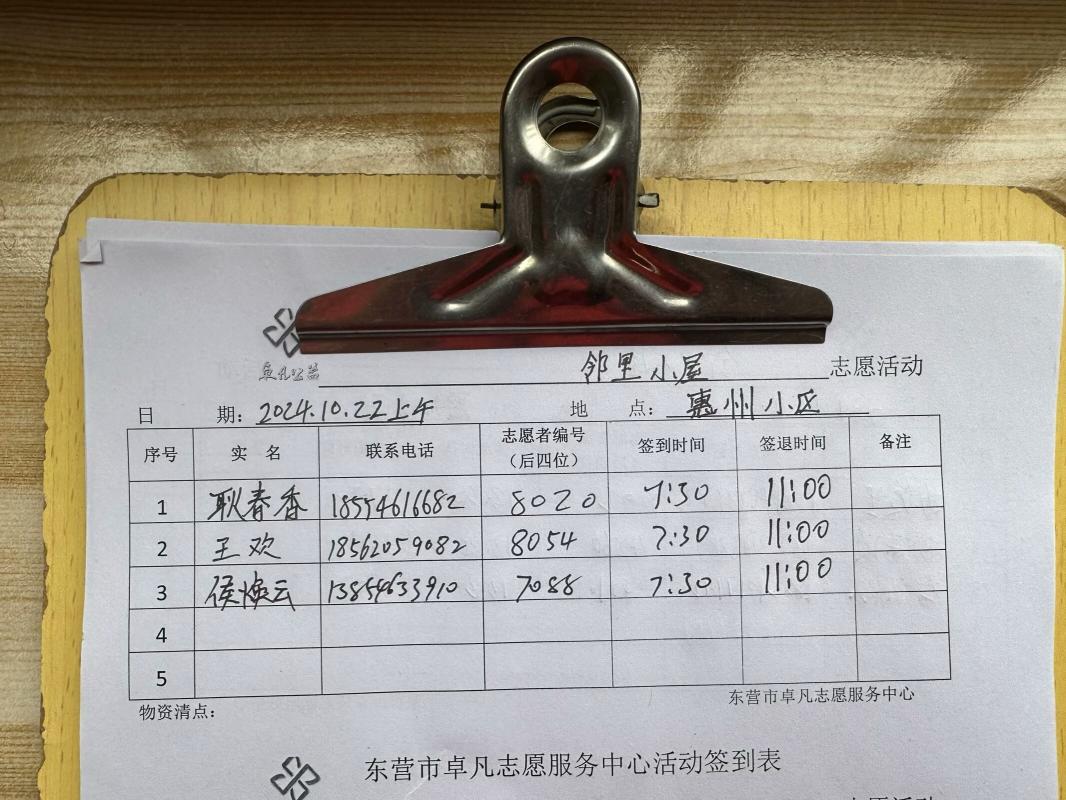 卓凡公益 邻里小屋 志愿活动
日 期：2024.10.22上午 地 点：惠州小区
序号 实 名 联系电话 志愿者编号（后四位） 签到时间 签退时间 备注
1 耿春香 18554616682 8020 7:30 11:00
2 王欢 18562059082 8054 7:30 11:00
3 侯焕云 13854633910 7088 7:30 11:00
4
5
东营市卓凡志愿服务中心
物资清点：
东营市卓凡志愿服务中心活动签到表